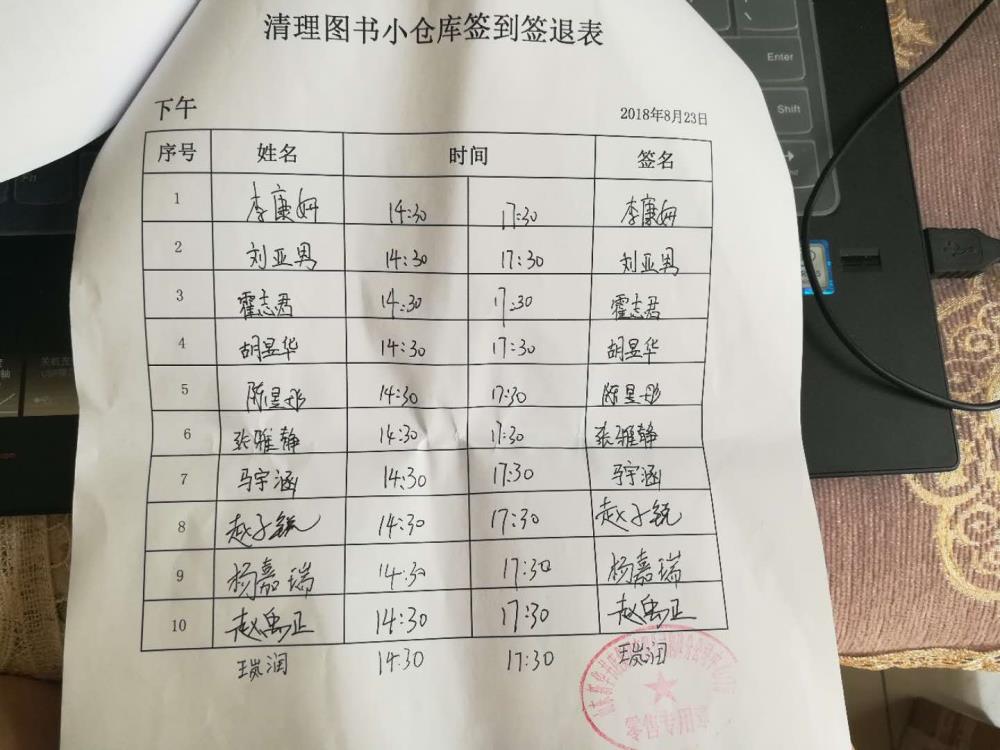 清理图书小仓库签到签退表
下午 2018年8月23日
序号 姓名 时间 签名
1 李康妍 14:30 17:30 李康妍
2 刘亚男 14:30 17:30 刘亚男
3 霍志君 14:30 17:30 霍志君
4 胡昱华 14:30 17:30 胡昱华
5 陈星彤 14:30 17:30 陈星彤
6 张雅静 14:30 17:30 张雅静
7 马宇涵 14:30 17:30 马宇涵
8 赵子锐 14:30 17:30 赵子锐
9 杨嘉瑞 14:30 17:30 杨嘉瑞
10 赵禹正 14:30 17:30 赵禹正
王岚润 14:30 17:30 王岚润
Enter
Shift